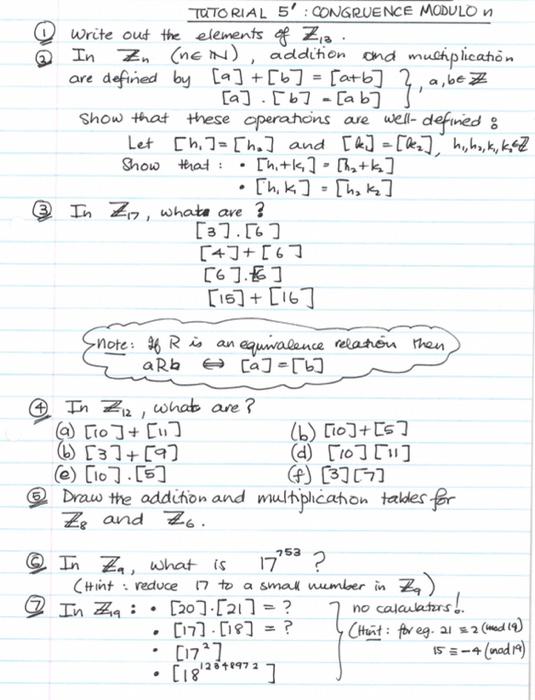 TUTORIAL 5' : CONGRUENCE MODULO n
① Write out the elements of ℤ₁₃.
② In ℤₙ (n∈ℕ), addition and multiplication
are defined by [a] + [b] = [a+b] }, a,b∈ℤ
[a] . [b] = [ab]
Show that these operations are well-defined :
Let [h₁]=[h₂] and [k₁]=[k₂], h₁,h₂,k₁,k₂∈ℤ
Show that : • [h₁+k₁] = [h₂+k₂]
• [h₁k₁] = [h₂k₂]
③ In ℤ₁₇, what are ?
[3].[6]
[4]+[6]
[6].[6]
[15]+[16]
Note: If R is an equivalence relation then
aRb ⇔ [a]=[b]
④ In ℤ₁₂, what are?
(a) [10]+[11] (b) [10]+[5]
(b) [3]+[9] (d) [10][11]
(e) [10].[5] (f) [3][7]
⑤ Draw the addition and multiplication tables for
ℤ₈ and ℤ₆.
⑥ In ℤ₉, what is 17⁷⁵³ ?
(Hint : reduce 17 to a small number in ℤ₉)
⑦ In ℤ₁₉ : • [20].[21] = ? } no calculators!.
• [17].[18] = ? (Hint : for eg. 21 ≡ 2 (mod 19)
• [17²] 15 ≡ -4 (mod 19)
• [18¹²³⁴⁸⁹⁷²]